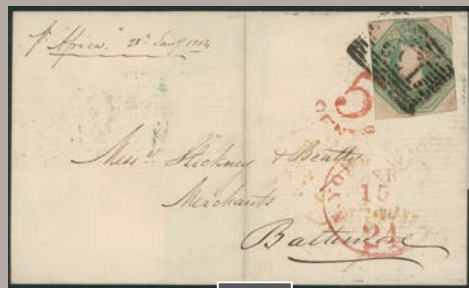 pr "Africa" 28th Jany 1854
5
CENTS
Messrs Stickney & Beatty
Merchants
Baltimore
YORK
FEB
15
24